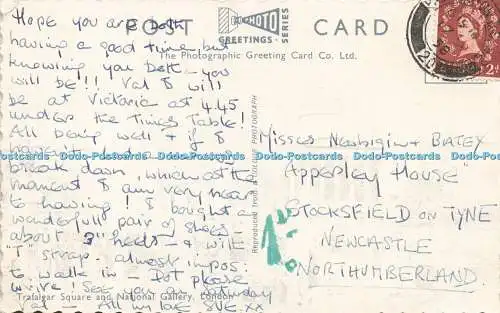 POST CARD
PHOTO
GREETINGS
SERIES
The Photographic Greeting Card Co. Ltd.
Hope you are both
having a good time, but
knowing you both – you
will be!!! Val & will
be at Victoria at 4.45
under the Times Table!
All being well & if I
haven't had a
break down, which at the
moment I am very near
to having! I bought a
wonderfull pair of shoes!
about 3" heels – & with
"T" strap almost impos.
to walk in – Dot please
write! See you on Saturday
Val – All my love SUE. xx
Misses Newbigin & BATEY
"Apperley House"
STOCKSFIELD ON TYNE
NEWCASTLE
NORTHUMBERLAND
Reproduced from a PHOTOGRAPH
Trafalgar Square and National Gallery, London
2d
Dodo-Postcards Dodo-Postcards Dodo-Postcards Dodo-Postcards Dodo-Postcards